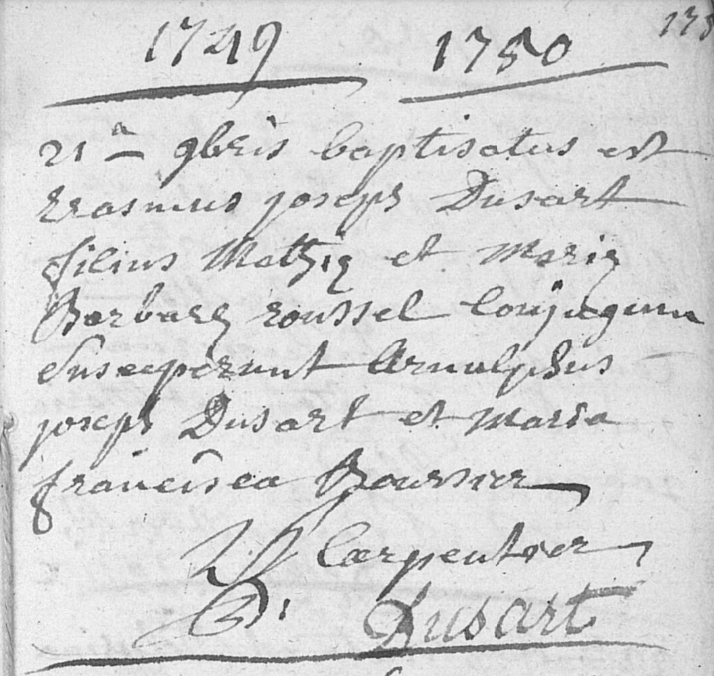 1749 1750 175
21a 9bris baptisatus est
Erasmus joseph Dusart
filius Mathiæ et Mariæ
Barbaræ roussel Conjugum
Susceperunt Arnulphus
joseph Dusart et Maria
francisca Boursier
Carpentier
Dusart